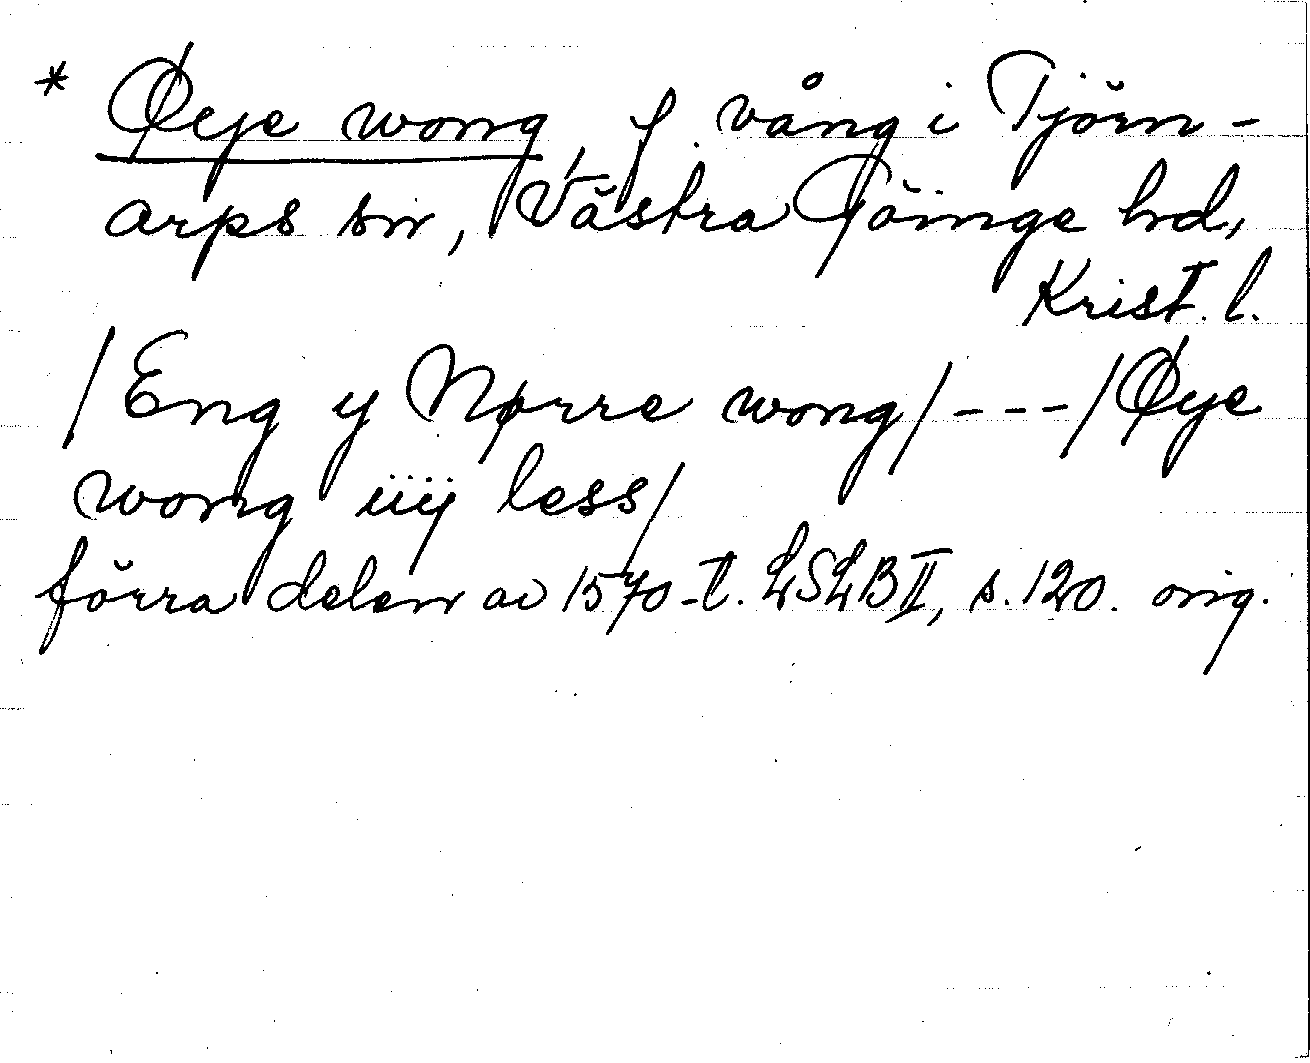 * Øye wong, f. vång i Tjörn-
arps sn, Västra Göinge hd,
Krist. l.
/Eng y Nørre wong/---/Øye
wong iiij less/
förra delen av 1570-t. LSLB II, s. 120. orig.